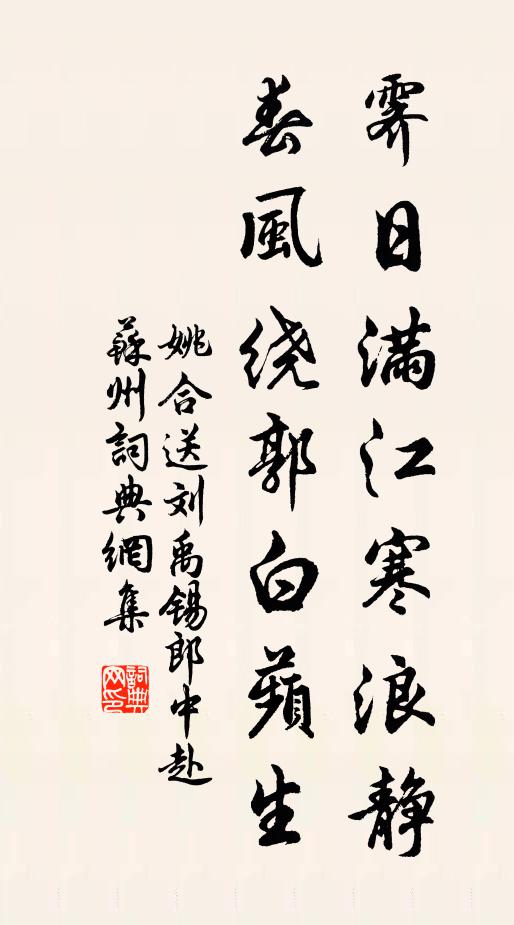 霁日满江寒浪静
春風绕郭白蘋生
姚合送刘禹錫郎中赴
蘇州詞典網集
詞典
网印